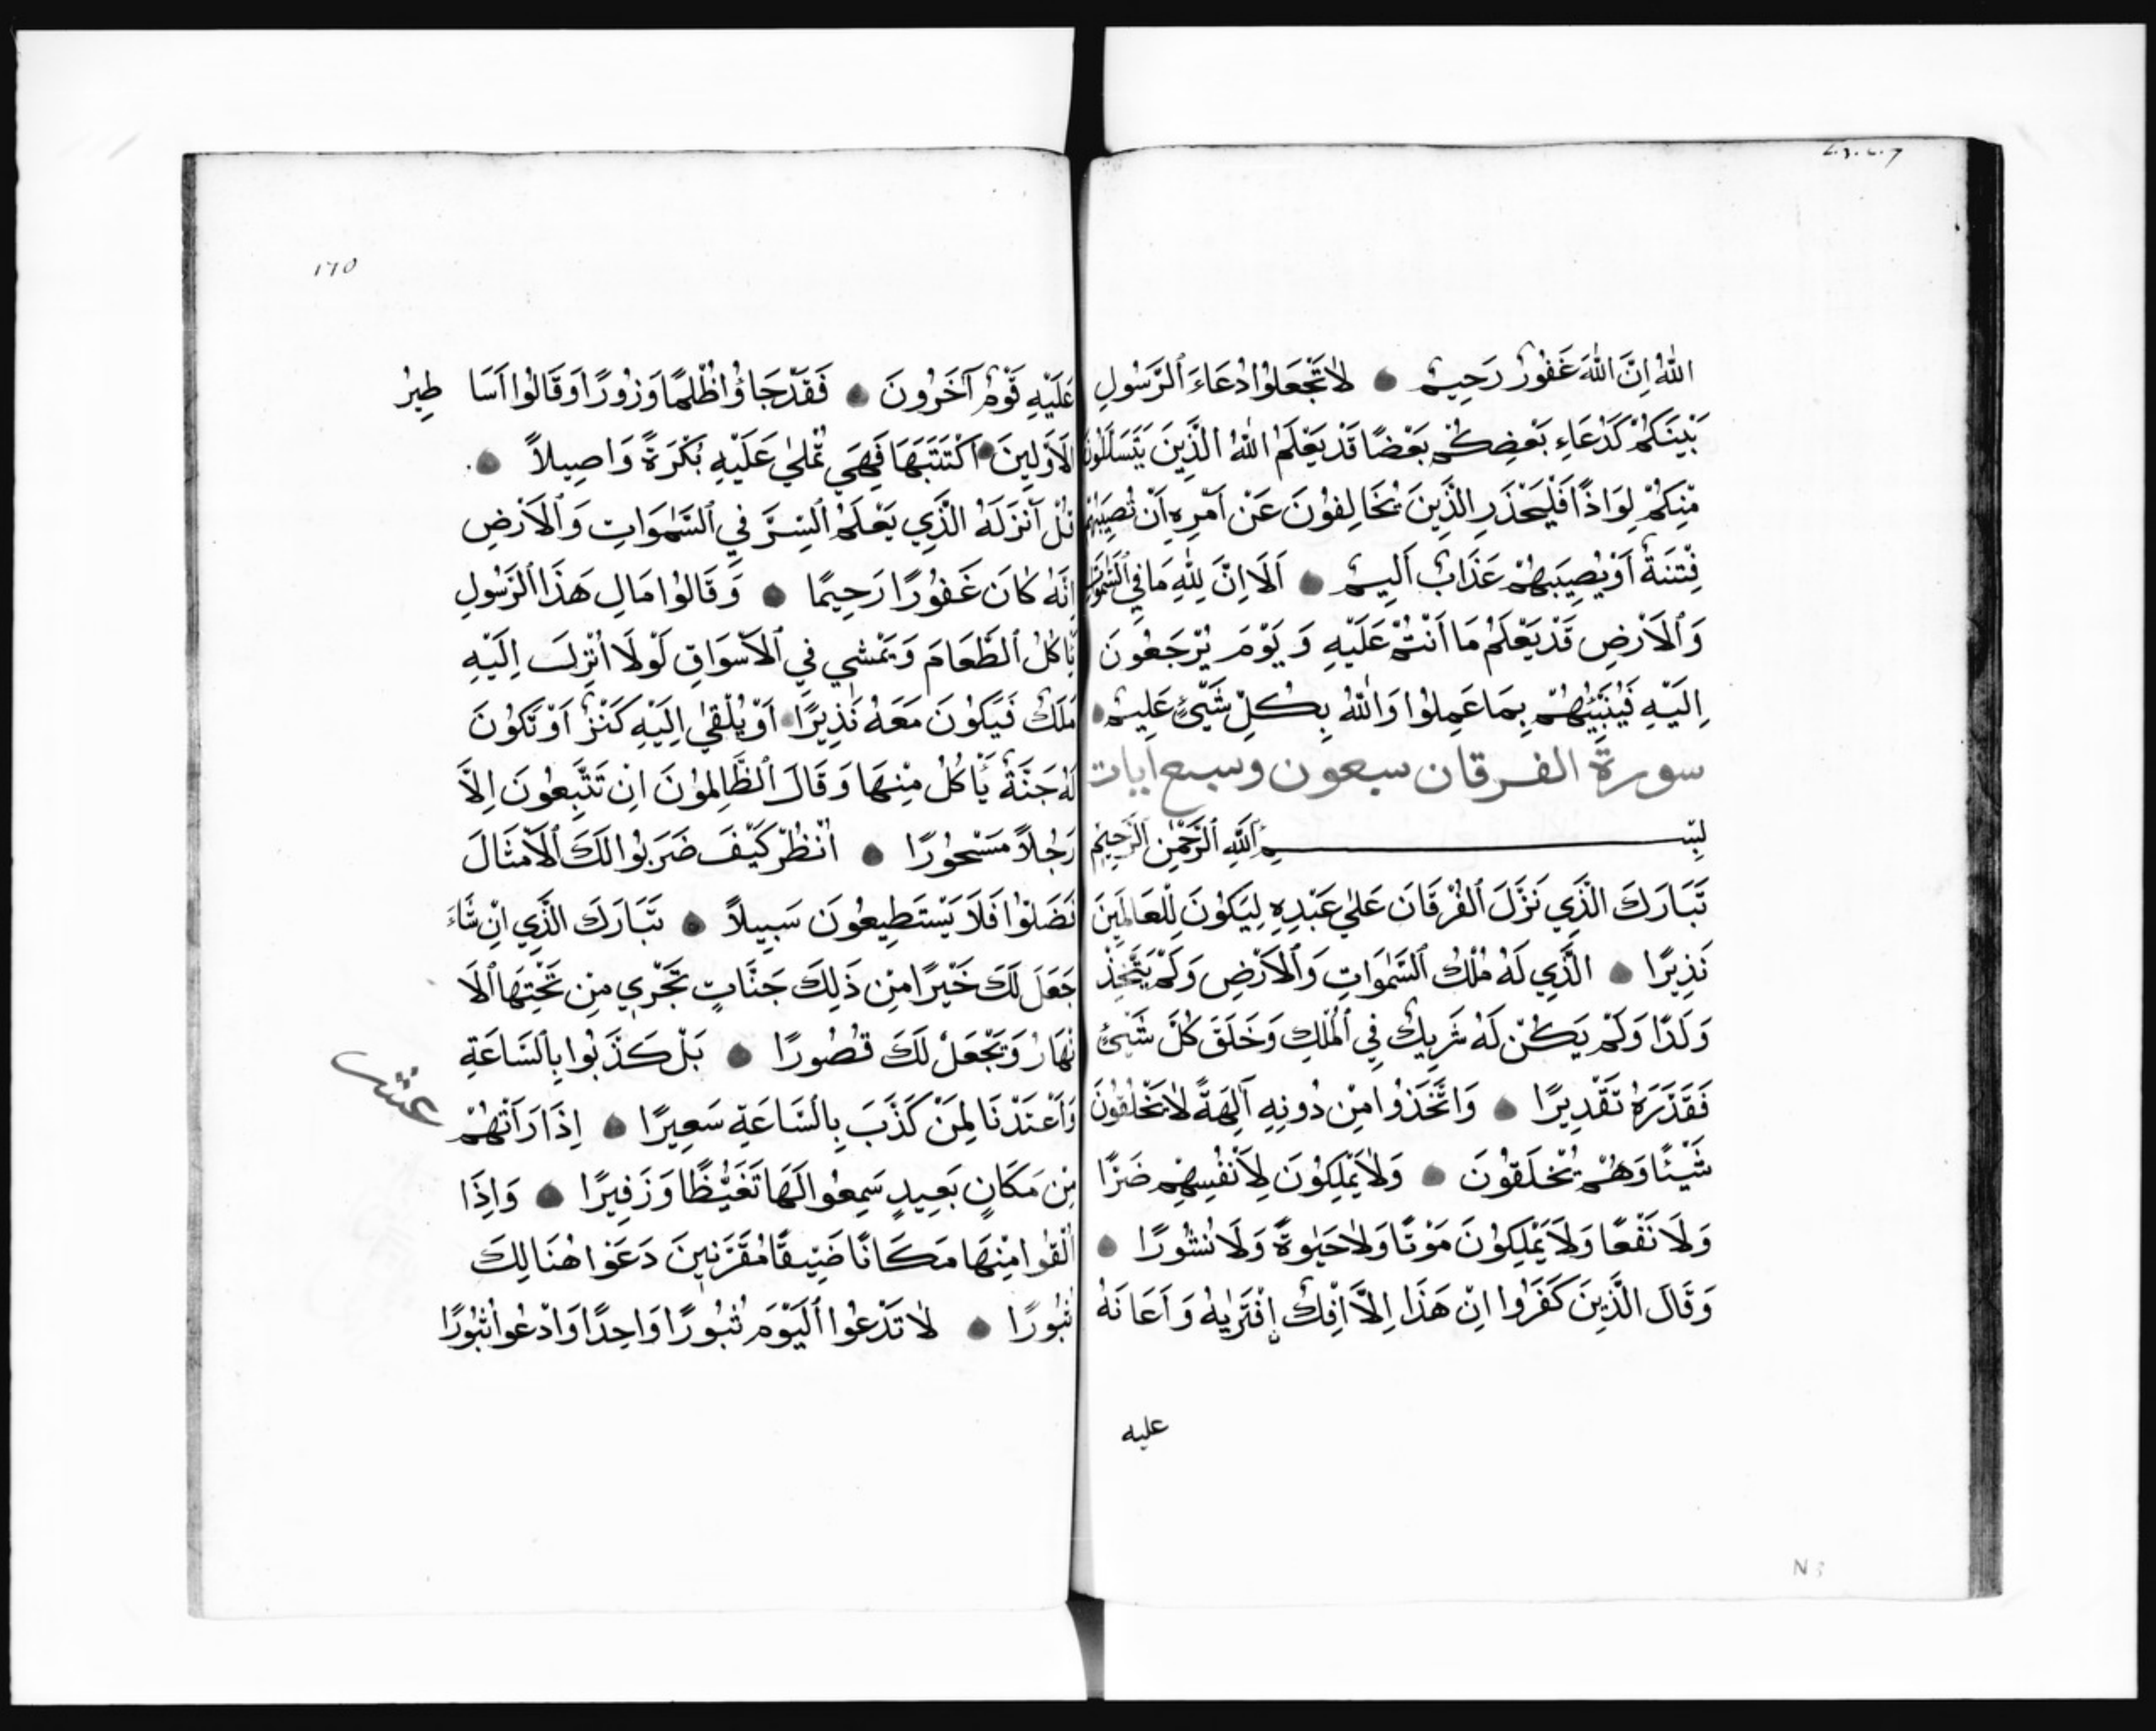 اللهُ اِنَّ اللهَ غَفُورٌ رَحِيمٌ لاٰ تَجْعَلُوا دُعَاءَ ٱلرَّسُولِ
بَيْنَكُمْ كَدُعَاءِ بَعْضِكُمْ بَعْضًا قَدْ يَعْلَمُ اللهُ الَّذِينَ يَتَسَلَّلُونَ
مِنْكُمْ لِوَاذًا فَلْيَحْذَرِ الَّذِينَ يُخَالِفُونَ عَنْ اَمْرِهِ اَنْ تُصِيبَهُمْ
فِتْنَةٌ اَوْ يُصِيبَهُمْ عَذَابٌ اَلِيمٌ اَلَا اِنَّ لِلّٰهِ مَا فِي ٱلسَّمٰوَاتِ
وَٱلْاَرْضِ قَدْ يَعْلَمُ مَا اَنْتُمْ عَلَيْهِ وَ يَوْمَ يُرْجَعُونَ
اِلَيْهِ فَيُنَبِّئُهُمْ بِمَا عَمِلُوا وَاللهُ بِكُلِّ شَيْئٍ عَلِيمٌ
سورة الفرقان سبعون وسبع ايات
بِسْمِ ٱللهِ ٱلرَّحْمٰنِ ٱلرَّحِيمِ
تَبَارَكَ الَّذِي نَزَّلَ ٱلفُرْقَانَ عَلٰي عَبْدِهِ لِيَكُونَ لِلْعَالَمِينَ
نَذِيرًا الَّذِي لَهُ مُلْكُ ٱلسَّمٰوَاتِ وَٱلْاَرْضِ وَلَمْ يَتَّخِذْ
وَلَدًا وَلَمْ يَكُنْ لَهُ شَرِيكٌ فِي ٱلْمُلْكِ وَخَلَقَ كُلَّ شَيْئٍ
فَقَدَّرَهُ تَقْدِيرًا وَاتَّخَذُوا مِنْ دُونِهِ آلِهَةً لاٰ يَخْلُقُونَ
شَيْئًا وَهُمْ يُخْلَقُونَ وَلاٰ يَمْلِكُونَ لِاَنْفُسِهِمْ ضَرًّا
وَلَا نَفْعًا وَلَا يَمْلِكُونَ مَوْتًا وَلاٰ حَيٰوةً وَلَا نُشُورًا
وَقَالَ الَّذِينَ كَفَرُوا اِنْ هَذَا اِلَّا اِفْكٌ اِفْتَرٰيهُ وَ اَعَانَهُ
عليه
١٦٥
عَلَيْهِ قَوْمٌ آخَرُونَ فَقَدْ جَاؤُا ظُلْمًا وَزُورًا وَقَالُوا اَسَا طِيرُ
الْاَوَّلِينَ اَكْتَتَبَهَا فَهِيَ تُمْلٰي عَلَيْهِ بُكْرَةً وَاصِيلاً
قُلْ اَنْزَلَهُ الَّذِي يَعْلَمُ ٱلسِّرَّ فِي ٱلسَّمٰوَاتِ وَٱلْاَرْضِ
اِنَّهُ كَانَ غَفُورًا رَحِيمًا وَقَالُوا مَالِ هَذَا ٱلرَّسُولِ
يَاكُلُ ٱلطَّعَامَ وَيَمْشِي فِي ٱلْاَسْوَاقِ لَوْلَا اُنْزِلَ اِلَيْهِ
مَلَكٌ فَيَكُونَ مَعَهُ نَذِيرًا اَوْ يُلْقٰي اِلَيْهِ كَنْزٌ اَوْ تَكُونَ
لَهُ جَنَّةٌ يَأْكُلُ مِنْهَا وَقَالَ ٱلظَّالِمُونَ اِنْ تَتَّبِعُونَ اِلَّا
رَجُلاً مَسْحُورًا اُنْظُرْ كَيْفَ ضَرَبُوا لَكَ ٱلْاَمْثَالَ
فَضَلُّوا فَلَا يَسْتَطِيعُونَ سَبِيلاً تَبَارَكَ الَّذِي اِنْ شَاءَ
جَعَلَ لَكَ خَيْرًا مِنْ ذَلِكَ جَنَّاتٍ تَجْرِي مِنْ تَحْتِهَا ٱلَا
نْهَارُ وَيَجْعَلْ لَكَ قُصُورًا بَلْ كَذَّبُوا بِٱلسَّاعَةِ
عشر
وَاَعْتَدْنَا لِمَنْ كَذَّبَ بِٱلسَّاعَةِ سَعِيرًا اِذَا رَاَتْهُمْ
مِنْ مَكَانٍ بَعِيدٍ سَمِعُوا لَهَا تَغَيُّظًا وَزَفِيرًا وَاِذَا
اُلْقُوا مِنْهَا مَكَانًا ضَيِّقًا مُقَرَّنِينَ دَعَوْا هُنَالِكَ
ثُبُورًا لاٰ تَدْعُوا ٱلْيَوْمَ ثُبُورًا وَاحِدًا وَادْعُوا ثُبُورًا